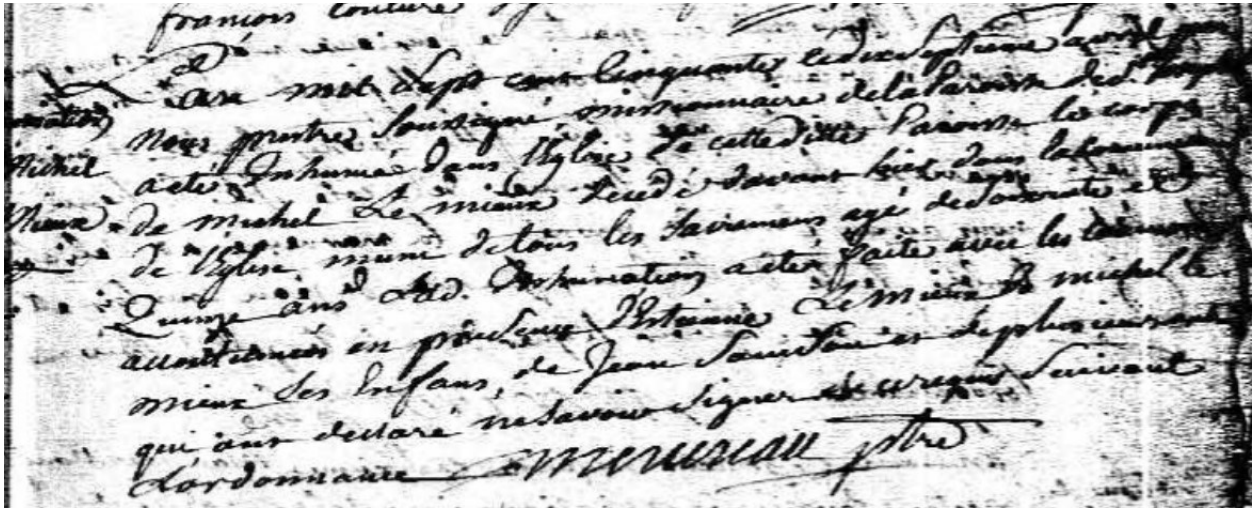 françois couture
Lan mil sept cent cinquante le dix septieme avril par
Nous prestre soussigné missionnaire de la Paroisse de
Michel a eté Inhumé dans l'Eglise de cette ditte Paroisse le corps
Mieux de michel Le mieux decedé davant hier dans la Communion
de l'Eglise muni de tous les sacremens agé de soixante et
Quinze ans Lad. Inhumation a eté faite avec les ceremonies
accoutumées en presence d'Estienne Le Mieux & michel le
mieux ses Enfans, de Jean et de plusieurs autres
qui ont declaré ne savoir signer de ce requis suivant
L'ordonnance ptre